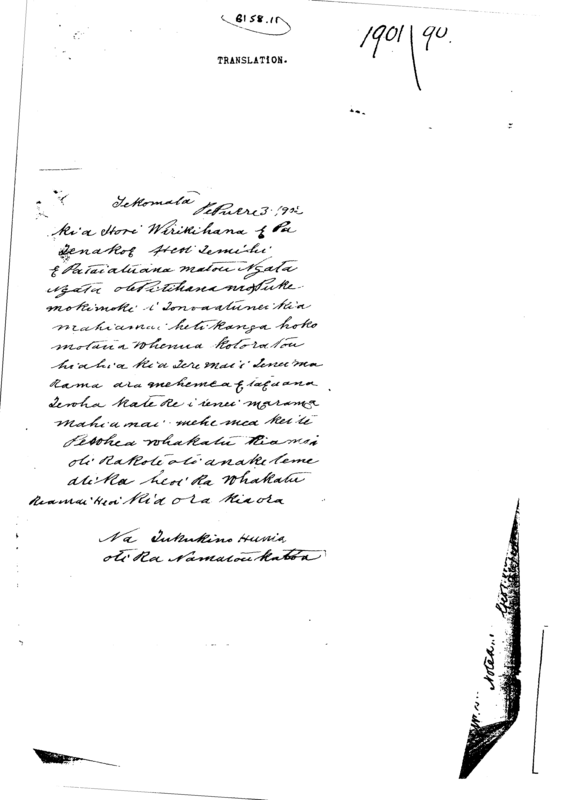 6158.11
TRANSLATION.
1901/90.
Te Komata
Pepuere 3. 190
kia Hori Wirikihana e Pa
Tenakoe Heoi Temihi
e Pataiatuana matou Ngata
Ngata ote Pitihana mo Puke
mokimoki i Tonoaatunei kia
mahiamai hetikanga hoko
motaua whenua kotoratou
hiahia kia Tere mai i Tenei ma
Rama ara mehemea e
Tewha Kate Re i ienei marama
mahiamai mehemea kei te
Pewhea whakatu Kiamai
oti Rakote oti anake teme
atika heoi Ra whakatu
Reamai Heoi Kia ora kia ora
Na Tukukino Huria
oti Ra Namatou katoa